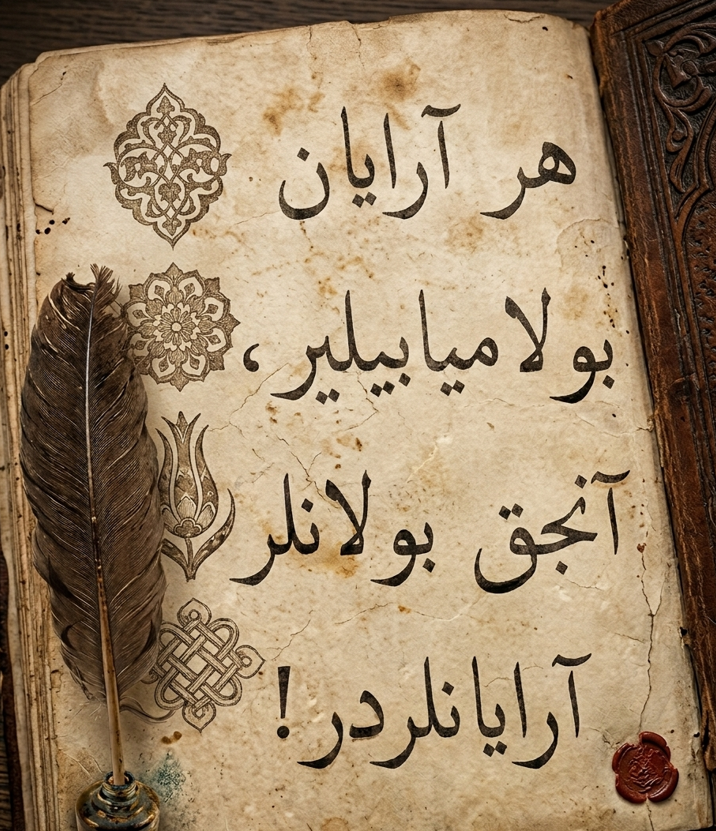 هر آرايان
بولاميابيلير،
آنجق بولانلر
آرايانلردر!